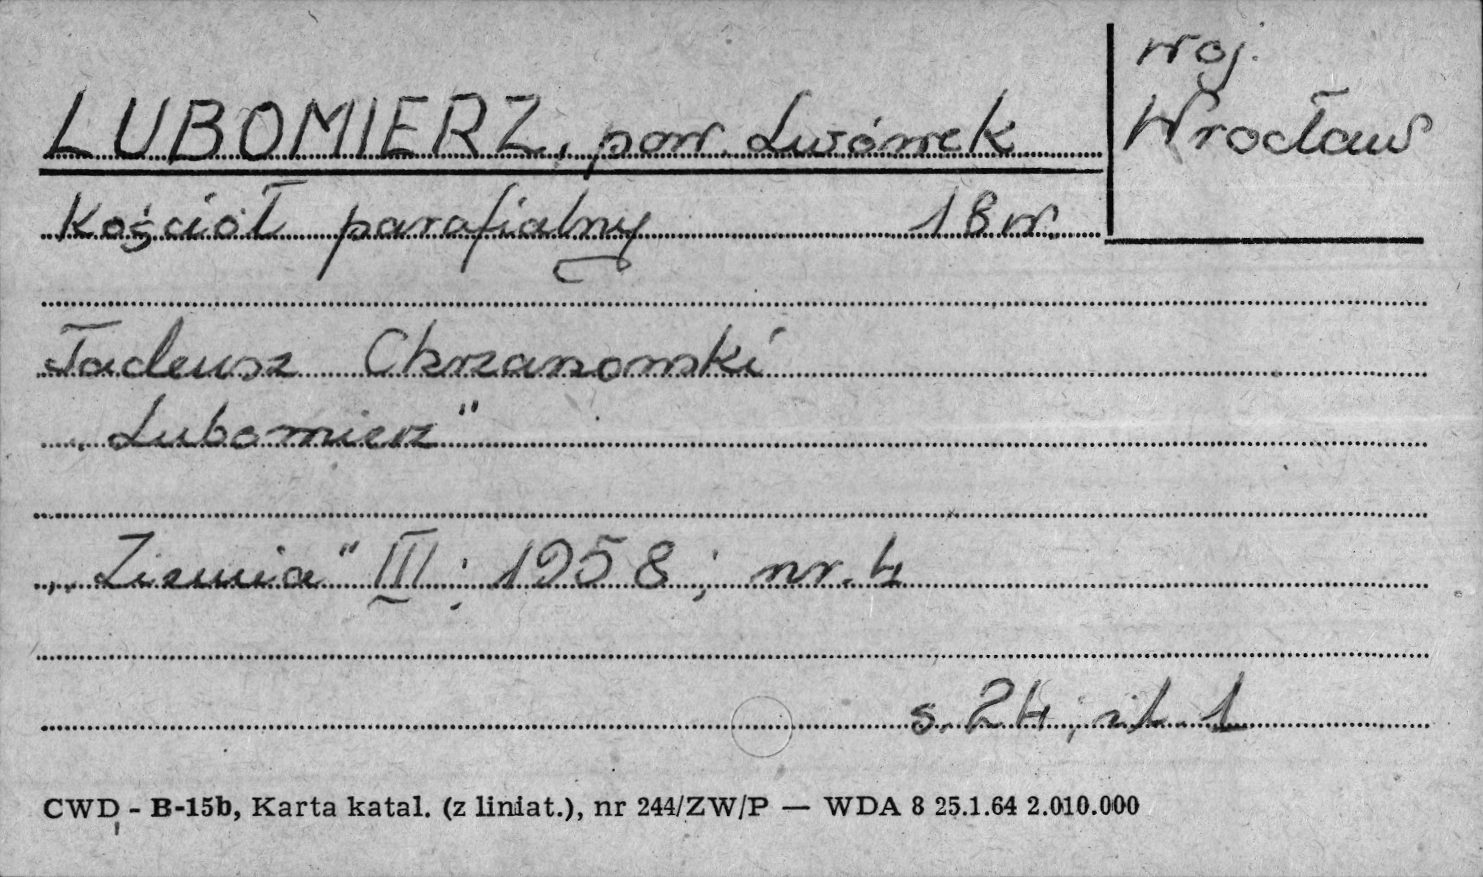 LUBOMIERZ, pow. Lwówek
woj.
Wrocław
Kościół parafialny 18 w.
Tadeusz Chrzanowski
„Lubomierz"
„Ziemia" III ; 1958 ; nr. 4
s. 24 ; il. 1
CWD - B-15b, Karta katal. (z liniat.), nr 244/ZW/P — WDA 8 25.1.64 2.010.000